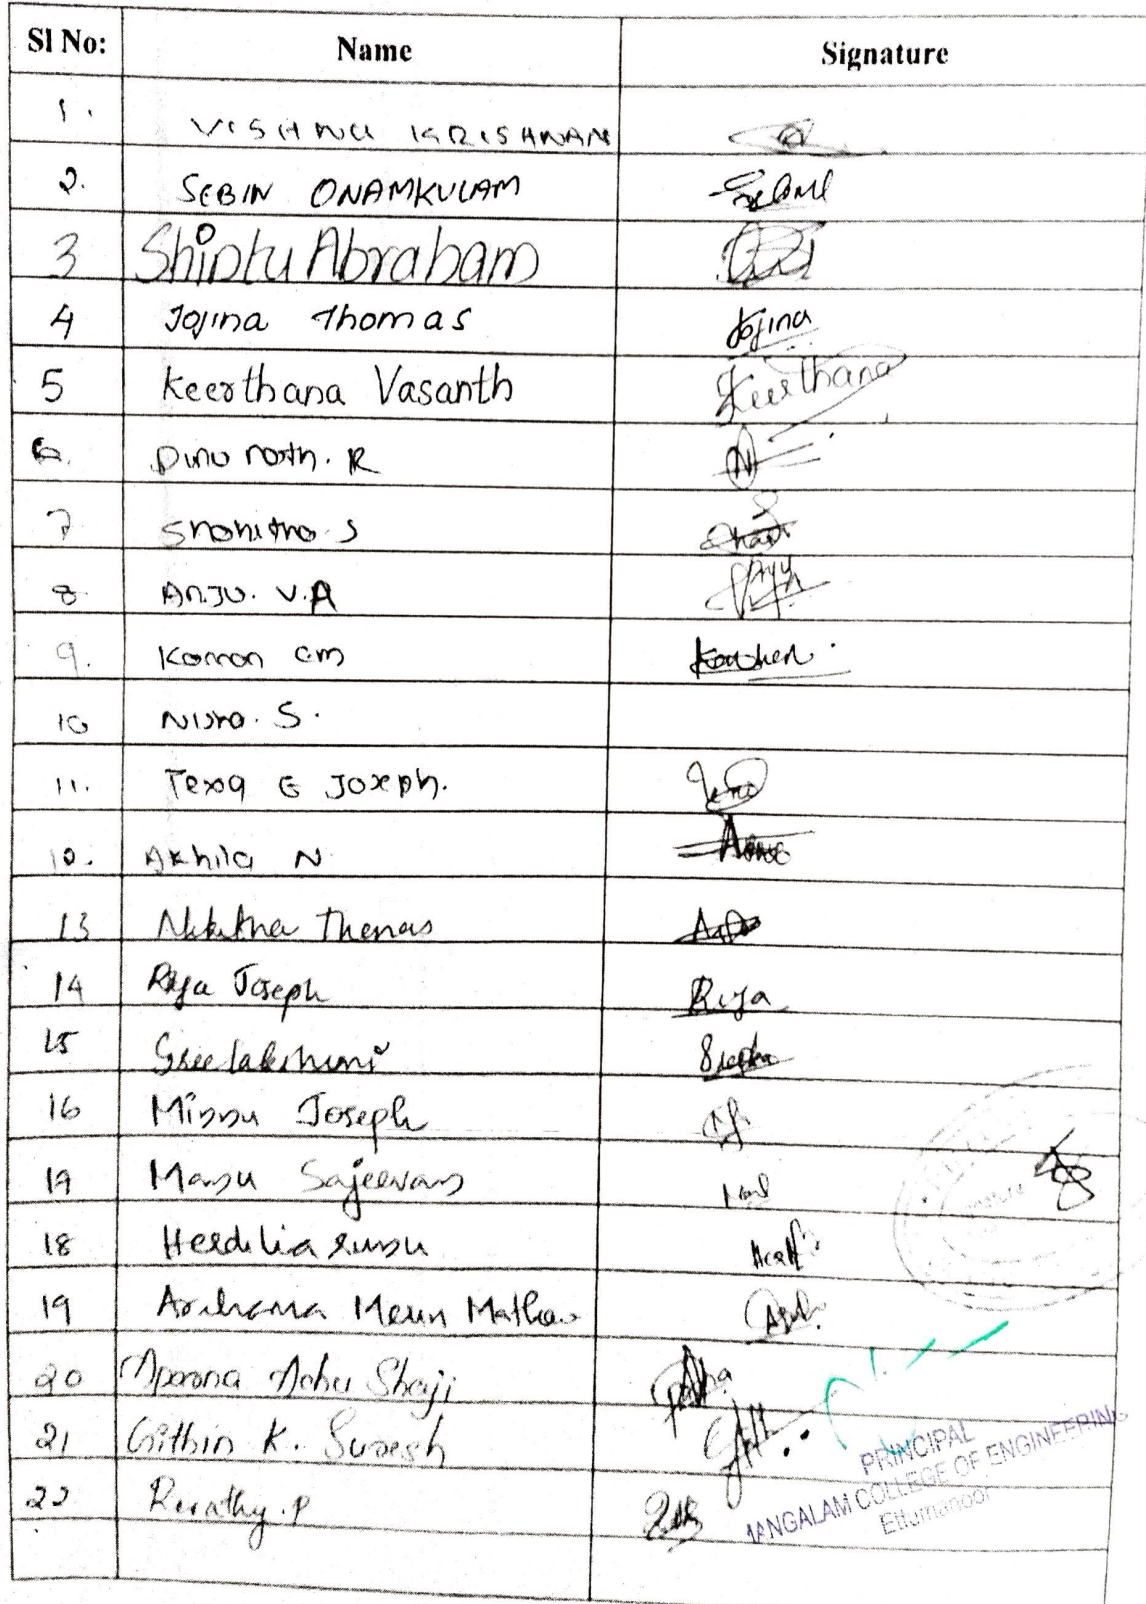 Sl No: Name Signature
1. VISHNU KRISHNAN
2. SEBIN ONAMKULAM
3 Shintu Abraham
4 Jojina Thomas Jojina
5 Keerthana Vasanth Keerthana
6. Dinu nath. R
7 Shahitha S
8. ANJU. V.A Anju
9. Kannan cm
10 Nisha. S.
11. Tessa E Joseph.
12. Akhila N
13 Nikitha Thomas
14 Riya Joseph Riya
15 Sreelakshmi
16 Minnu Joseph
17 Manu Sajeevan
18 Herdilia
19 Archana Merin Mathew
20 Aparna Achu Shaji
21 Githin K. Suresh
22 Revathy. P
PRINCIPAL
MANGALAM COLLEGE OF ENGINEERING
Ettumanoor